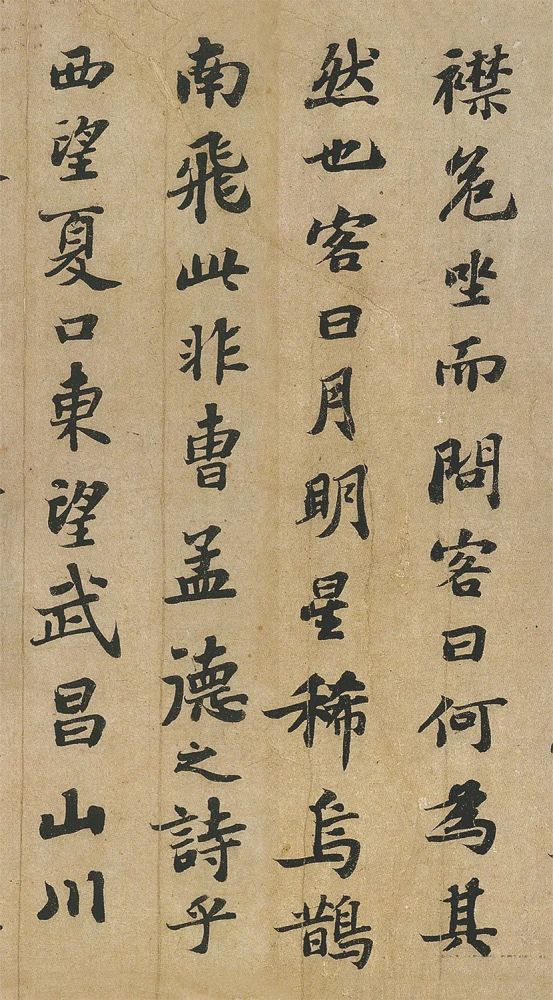 襟危坐而問客曰何為其
然也客曰月明星稀烏鵲
南飛此非曹孟德之詩乎
西望夏口東望武昌山川